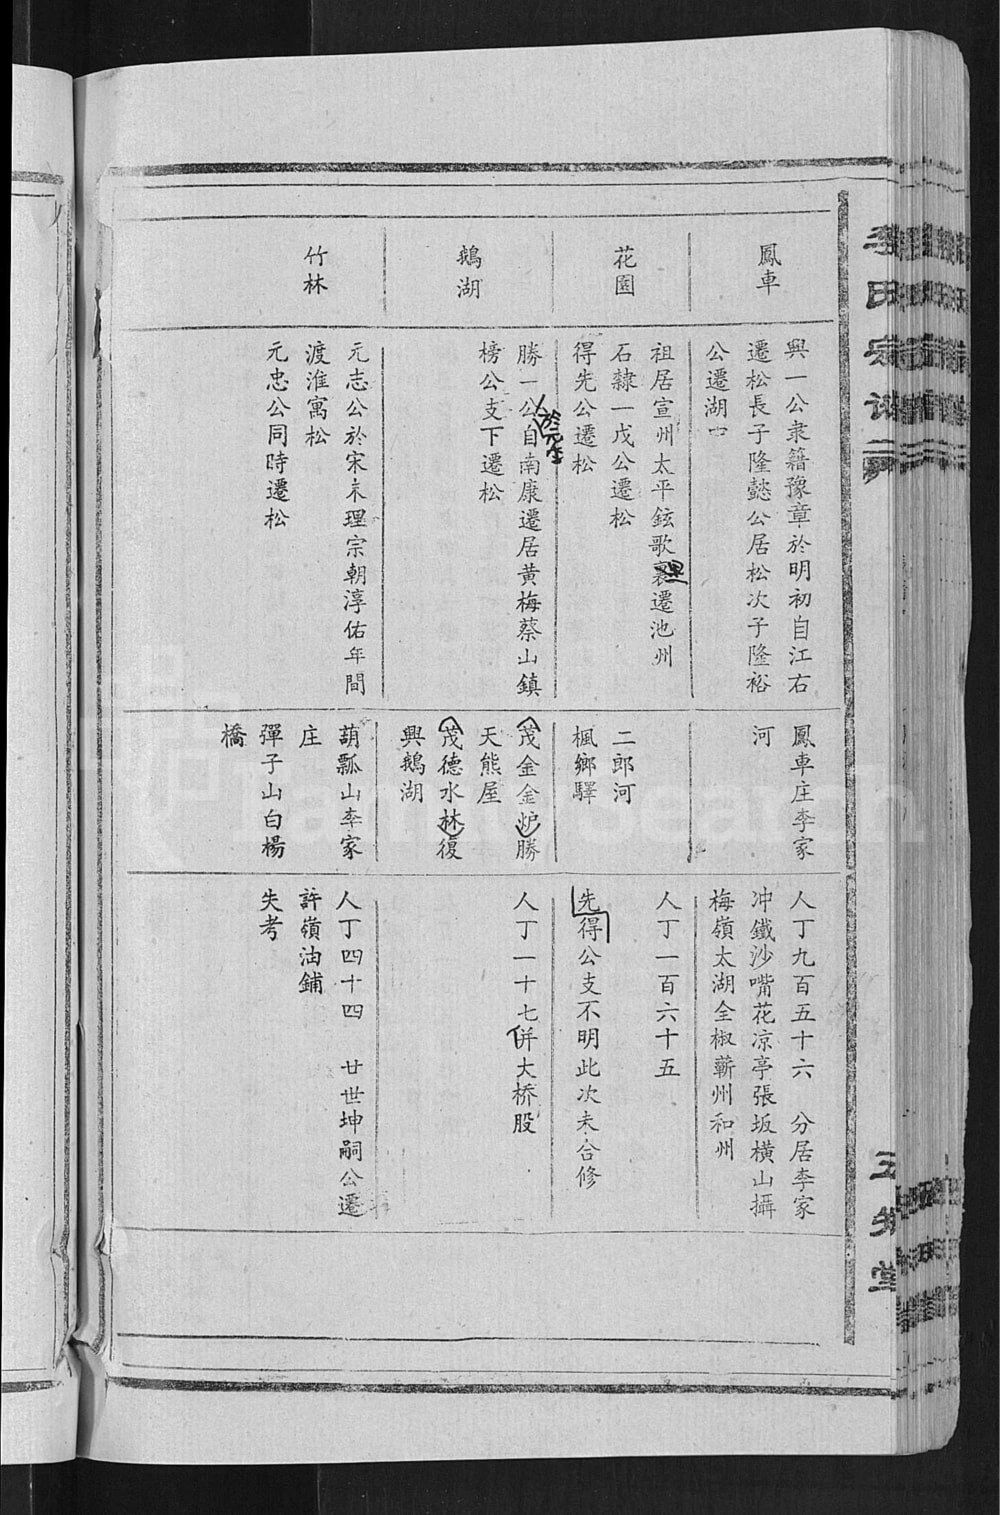 李氏宗譜
鳳車
興一公隶籍豫章於明初自江右
遷松長子隆懿公居松次子隆裕
公遷湖口
鳳車庄李家
河
人丁九百五十六　分居李家
冲鐵沙嘴花凉亭張坂橫山攝
梅嶺太湖全椒蘄州和州
花園
祖居宣州太平鉉歌裏遷池州
石隸一戊公遷松
得先公遷松
二郎河
楓鄉驛
人丁一百六十五
先得公支不明此次未合修
鵝湖
勝一公自南康遷居黃梅蔡山鎮
榜公支下遷松
茂金金炉勝
天熊屋
茂德水林復
興鵝湖
人丁一十七併大桥股
竹林
元志公於宋末理宗朝淳佑年間
渡淮寓松
元忠公同時遷松
葫瓢山李家
庄
彈子山白楊
橋
人丁四十四　廿世坤嗣公遷
許嶺油鋪
失考